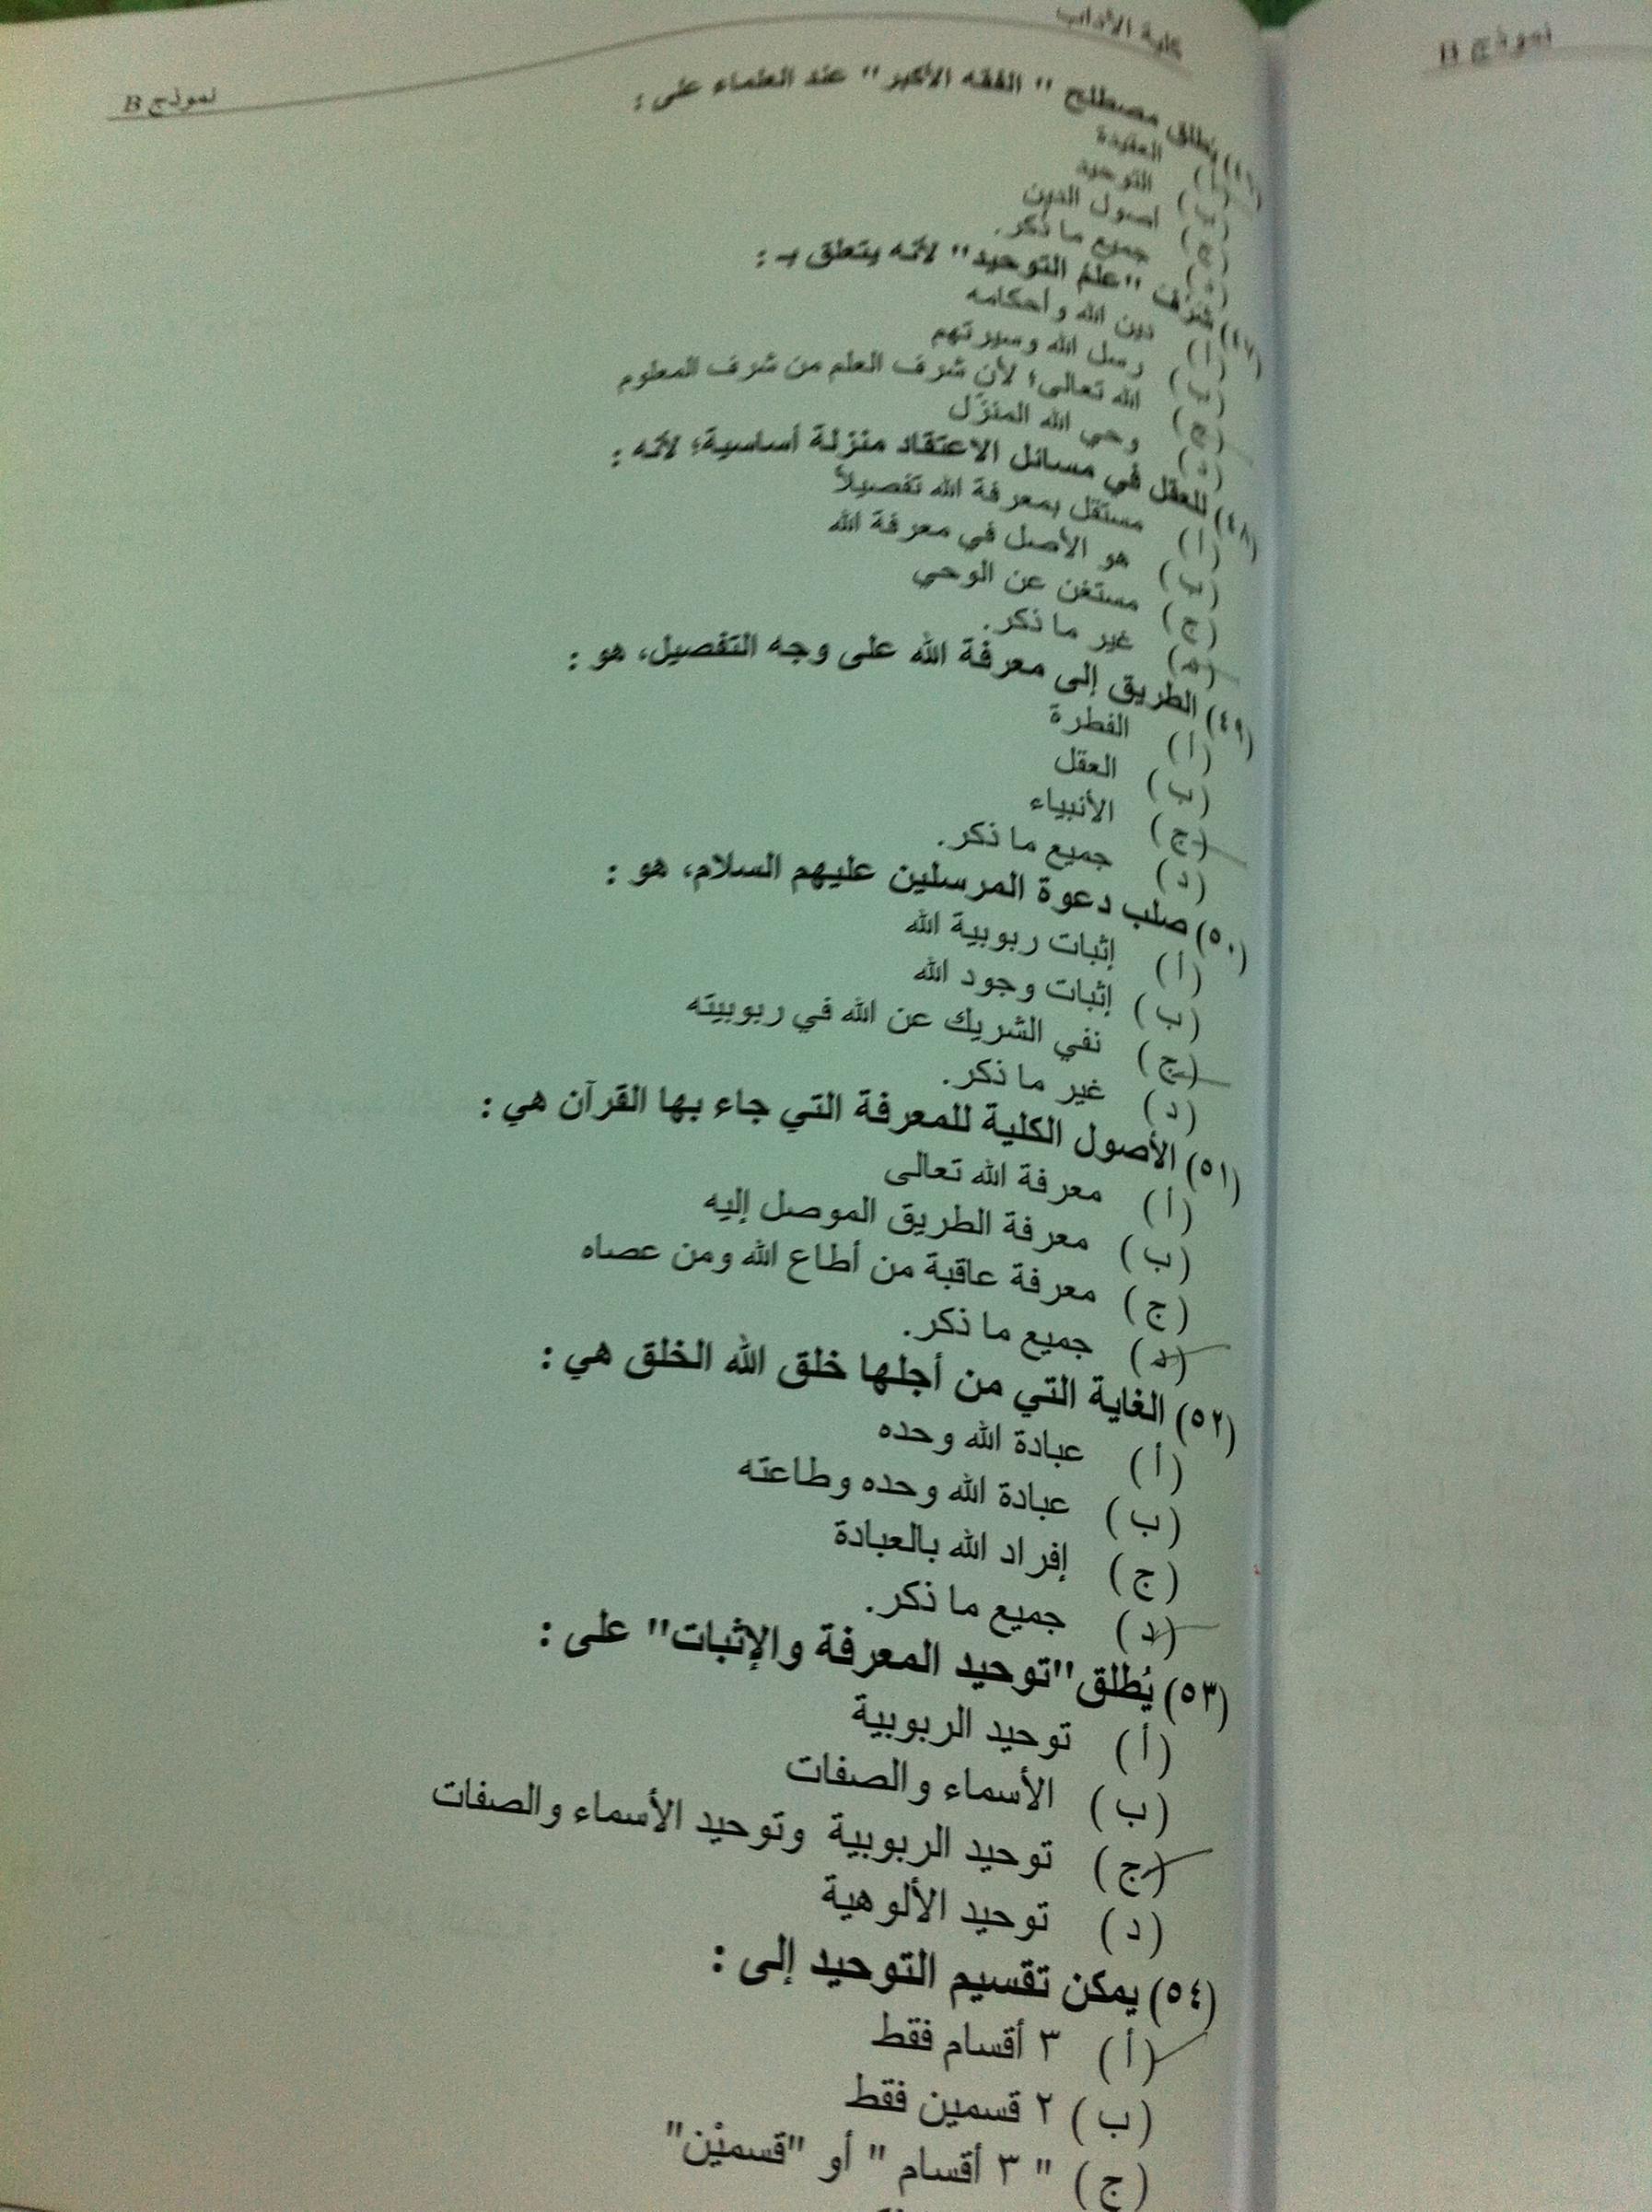 كلية الآداب
نموذج B
نموذج B
(٤٦) يُطلق مصطلح " الفقه الأكبر" عند العلماء على :
(أ) العقيدة
(ب) التوحيد
(ج) أصول الدين
(د) جميع ما ذُكر.
(٤٧) شَرُف "علمُ التوحيد" لأنه يتعلق بـ :
(أ) دين الله وأحكامه
(ب) رسل الله وسيرتهم
(ج) الله تعالى؛ لأن شرف العلم من شرف المعلوم
(د) وحي الله المنزَّل
(٤٨) للعقل في مسائل الاعتقاد منزلة أساسية؛ لأنه :
(أ) مستقل بمعرفة الله تفصيلاً
(ب) هو الأصل في معرفة الله
(ج) مستغن عن الوحي
(د) غير ما ذكر.
(٤٩) الطريق إلى معرفة الله على وجه التفصيل، هو :
(أ) الفطرة
(ب) العقل
(ج) الأنبياء
(د) جميع ما ذكر.
(٥٠) صلب دعوة المرسلين عليهم السلام، هو :
(أ) إثبات ربوبية الله
(ب) إثبات وجود الله
(ج) نفي الشريك عن الله في ربوبيته
(د) غير ما ذكر.
(٥١) الأصول الكلية للمعرفة التي جاء بها القرآن هي :
(أ) معرفة الله تعالى
(ب) معرفة الطريق الموصل إليه
(ج) معرفة عاقبة من أطاع الله ومن عصاه
(د) جميع ما ذكر.
(٥٢) الغاية التي من أجلها خلق الله الخلق هي :
(أ) عبادة الله وحده
(ب) عبادة الله وحده وطاعته
(ج) إفراد الله بالعبادة
(د) جميع ما ذكر.
(٥٣) يُطلق "توحيد المعرفة والإثبات" على :
(أ) توحيد الربوبية
(ب) الأسماء والصفات
(ج) توحيد الربوبية وتوحيد الأسماء والصفات
(د) توحيد الألوهية
(٥٤) يمكن تقسيم التوحيد إلى :
(أ) ٣ أقسام فقط
(ب) ٢ قسمين فقط
(ج) " ٣ أقسام " أو "قسميْن"